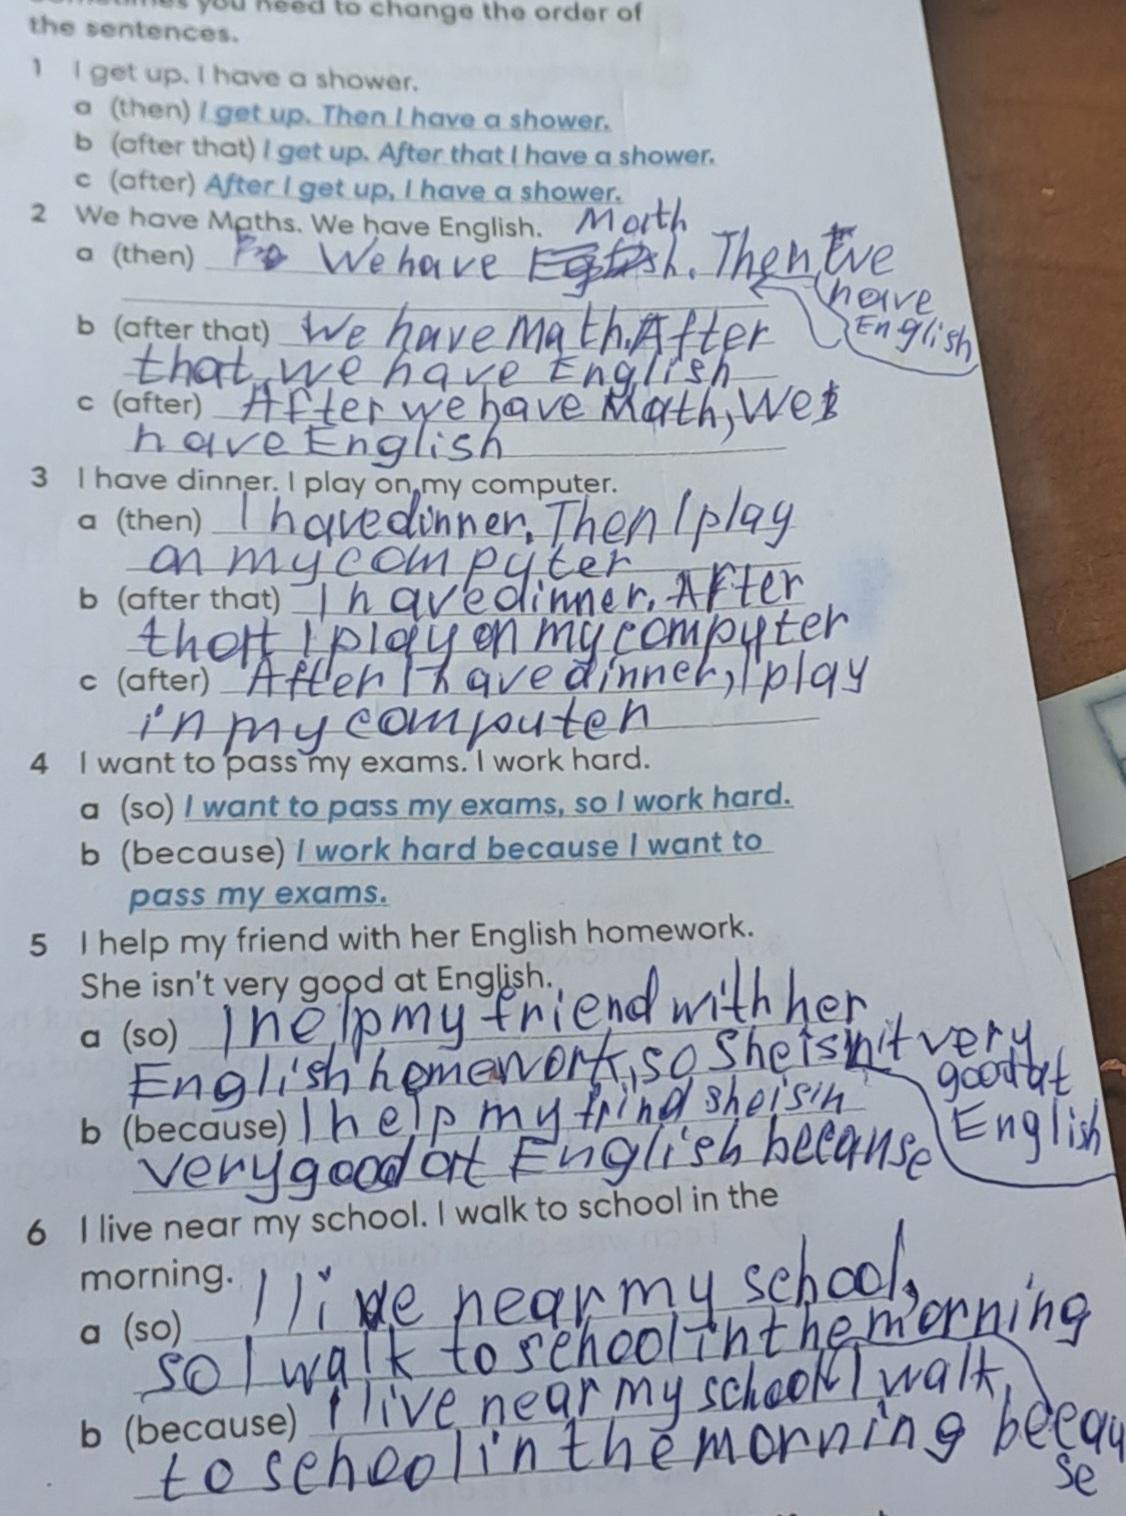 you need to change the order of
the sentences.
1 I get up. I have a shower.
a (then) I get up. Then I have a shower.
b (after that) I get up. After that I have a shower.
c (after) After I get up, I have a shower.
2 We have Maths. We have English. Math
a (then) We have . Then we
have
English
b (after that) We have Math. After
that, we have English
c (after) After we have Math, We
have English
3 I have dinner. I play on my computer.
a (then) I have dinner. Then I play
on my compyter
b (after that) I have dinner. After
that I play on my compyter
c (after) After I have dinner, I play
in my computer
4 I want to pass my exams. I work hard.
a (so) I want to pass my exams, so I work hard.
b (because) I work hard because I want to
pass my exams.
5 I help my friend with her English homework.
She isn't very good at English.
a (so) I help my friend with her
English homework, so She isn't very
good at
English
b (because) I help my frind she isin
very good at English becanse
6 I live near my school. I walk to school in the
morning.
a (so) I live near my school,
so I walk to school in the morning
b (because) I live near my school I walk
to school in the morning beecau
se